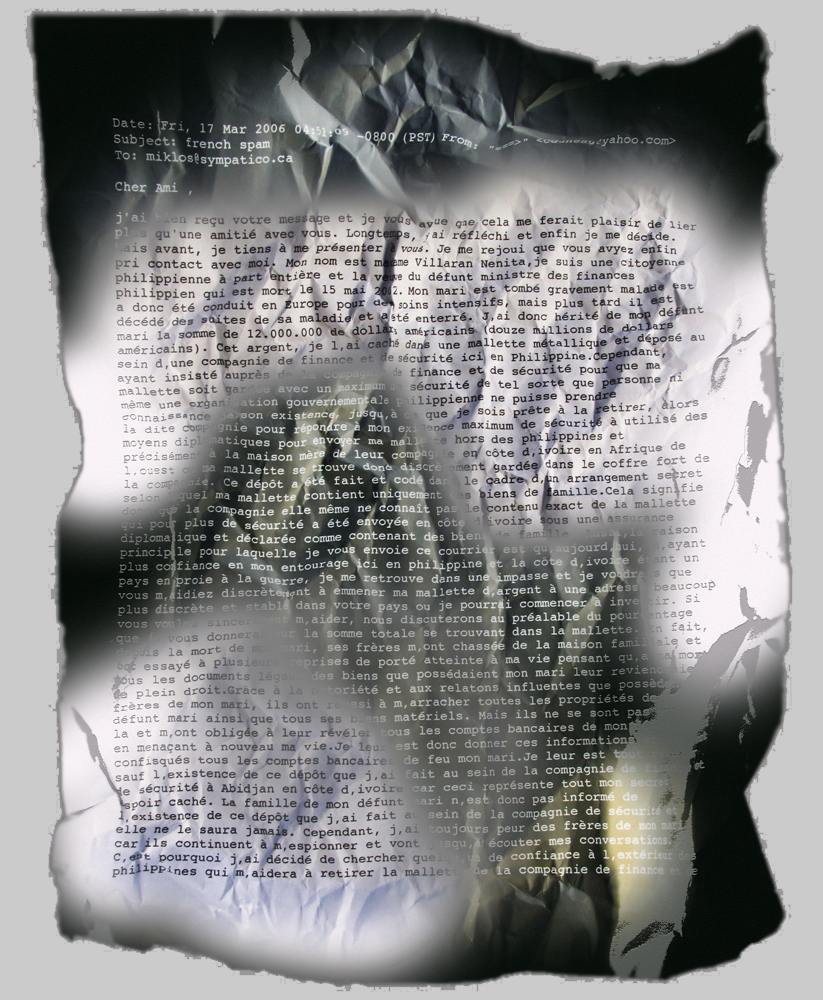 Date: Fri, 17 Mar 2006 04:51:09 -0800 (PST) From: yahoo.com>
Subject: french spam
To: miklos@sympatico.ca
Cher Ami ,
j'ai bien reçu votre message et je vous avue que cela me ferait plaisir de lier
plus qu'une amitié avec vous. Longtemps, j'ai réfléchi et enfin je me décide.
mais avant, je tiens à me présenter à vous. Je me rejoui que vous avyez enfin
pri contact avec moi. Mon nom est madame Villaran Nenita,je suis une citoyenne
philippienne à part entière et la veuve du défunt ministre des finances
philippien qui est mort 15 mai 2002. Mon mari est tombé gravement malade est
a donc été conduit en Europe pour des soins intensifs, mais plus tard il est
décédé des suites de sa maladie et a été enterré. J,ai donc hérité de mon défunt
mari la somme de 12.000.000 de dollars américains (douze millions de dollars
américains). Cet argent, je l,ai caché dans une mallette métallique et déposé au
sein d,une compagnie de finance et de sécurité ici en Philippine.Cependant,
ayant insisté auprès de la compagnie de finance et de sécurité pour que ma
mallette soit gardée avec un maximum de sécurité de tel sorte que personne ni
même une organisation gouvernementale philippienne ne puisse prendre
connaissance de son existence jusqu,à ce que je sois prête à la retirer, alors
la dite compagnie pour répondre à mon exigence maximum de sécurité à utilisé des
moyens diplomatiques pour envoyer ma mallette hors des philippines et
précisément à la maison mère de leur compagnie en côte d,ivoire en Afrique de
l,ouest où ma mallette se trouve donc discrètement gardée dans le coffre fort de
la compagnie. Ce dépôt a été fait et codé dans le cadre d,un arrangement secret
selon lequel ma mallette contient uniquement des biens de famille.Cela signifie
donc que la compagnie elle même ne connaît pas le contenu exact de la mallette
qui pour plus de sécurité a été envoyée en côte d,ivoire sous une assurance
diplomatique et déclarée comme contenant des biens de famille. La raison
principale pour laquelle je vous envoie ce courrier est qu,aujourd,hui, n,ayant
plus confiance en mon entourage ici en philippine et la côte d,ivoire étant un
pays en proie à la guerre, je me retrouve dans une impasse et je voudrais que
vous m,aidiez discrètement à emmener ma mallette d,argent à une adresse beaucoup
plus discrète et stable dans votre pays ou je pourrai commencer à investir. Si
vous voulez sincèrement m,aider, nous discuterons au préalable du pourcentage
que je vous donnerai sur la somme totale se trouvant dans la mallette. En fait,
depuis la mort de mon mari, ses frères m,ont chassée de la maison familiale et
ont essayé à plusieurs reprises de porté atteinte à ma vie pensant qu,à ma mort
tous les documents légaux des biens que possédaient mon mari leur reviendraient
de plein droit.Grace à la notoriété et aux relatons influentes que possède
frères de mon mari, ils ont réussi à m,arracher toutes les propriétés de
défunt mari ainsi que tous ses biens matériels. Mais ils ne se sont pas
la et m,ont obligée à leur révéler tous les comptes bancaires de mon
en menaçant à nouveau ma vie.Je leur est donc donner ces informations
confisqués tous les comptes bancaires de feu mon mari.Je leur est tout
sauf l,existence de ce dépôt que j,ai fait au sein de la compagnie de finance et
de sécurité à Abidjan en côte d,ivoire car ceci représente tout mon secret
espoir caché. La famille de mon défunt mari n,est donc pas informé de
l,existence de ce dépôt que j,ai fait au sein de la compagnie de sécurité et
elle ne le saura jamais. Cependant, j,ai toujours peur des frères de mon mari
car ils continuent à m,espionner et vont jusqu,à écouter mes conversations.
C,est pourquoi j,ai décidé de chercher quelqu,un de confiance à l,extérieur des
philippines qui m,aidera à retirer la mallette de la compagnie de finance et de